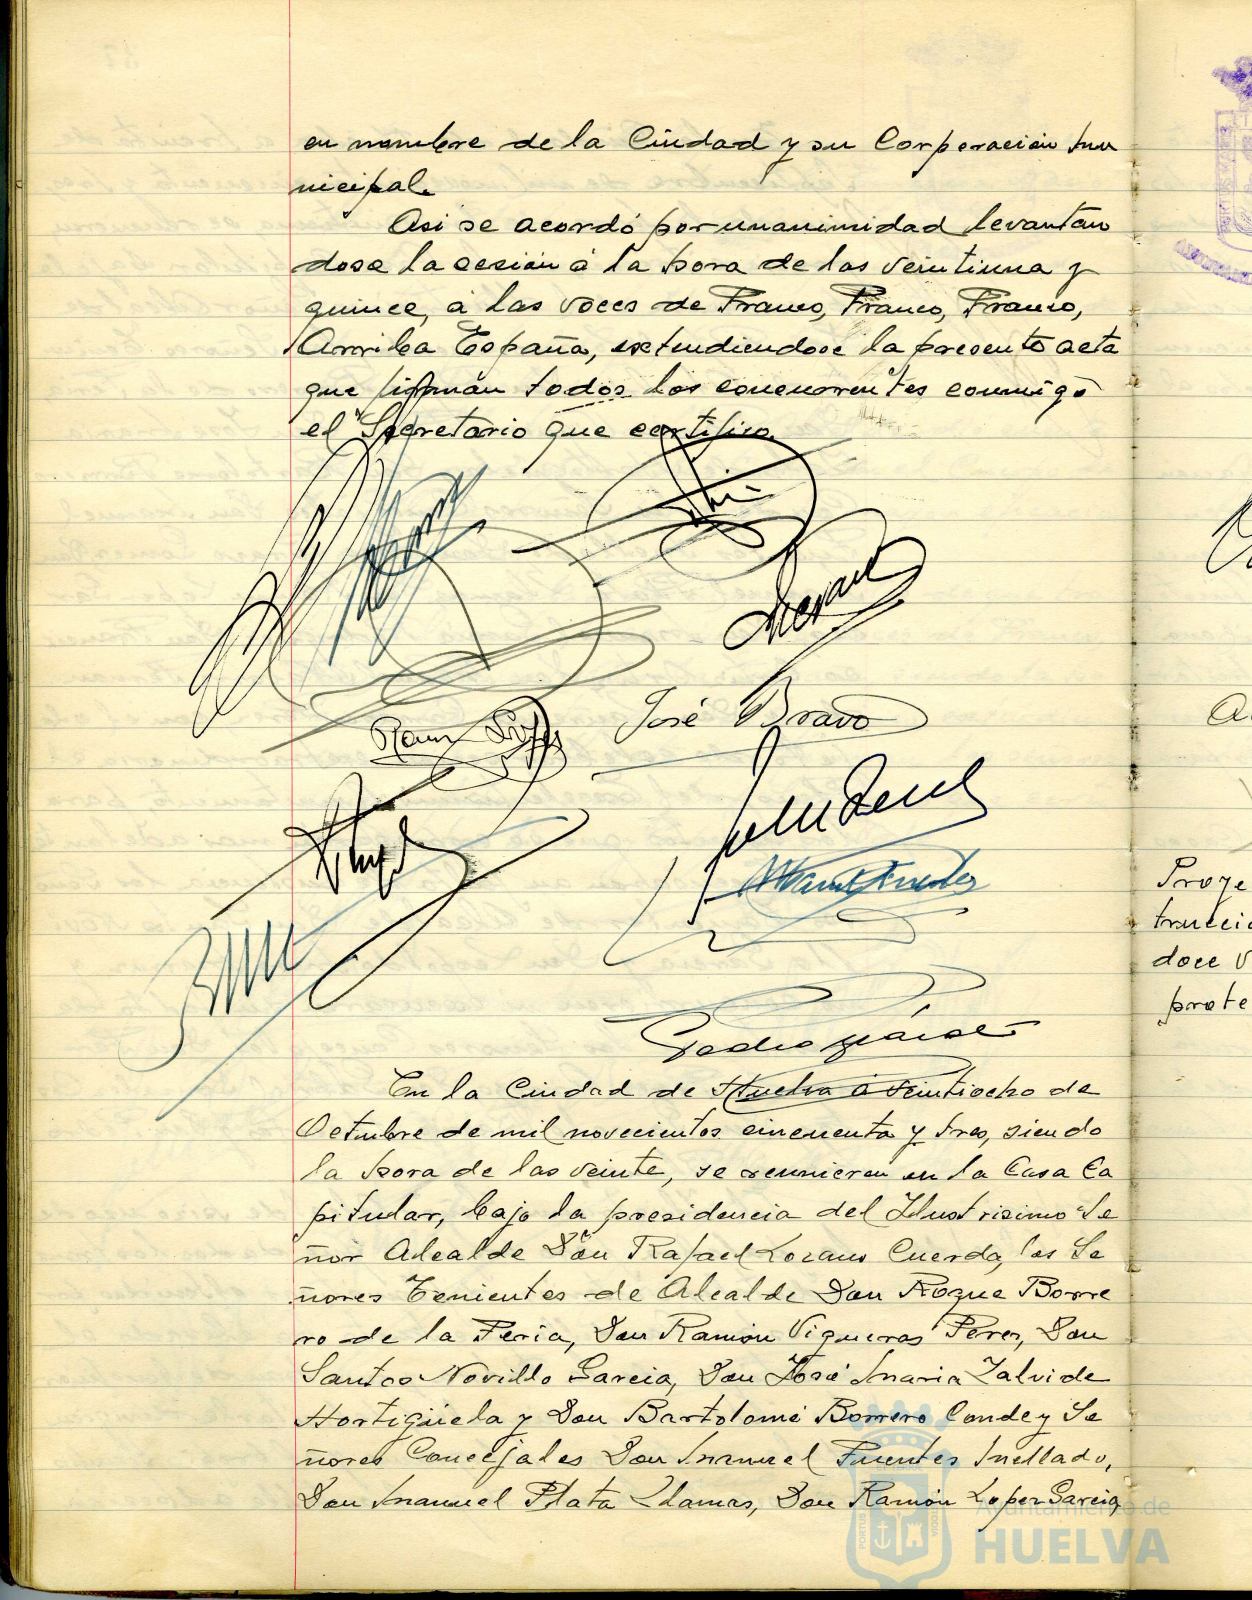 en nombre de la Ciudad y su Corporación Mu
nicipal.
Asi se acordó por unanimidad levantan
dose la sesión á la hora de las veintiuna y
quince, á las voces de Franco, Franco, Franco,
Arriba España, extendiendose la presente acta
que firman todos los concurrentes conmigo
el Secretario que certifico.
José Bravo
Pedro
En la Ciudad de Huelva á veintiocho de
Octubre de mil novecientos cincuenta y tres, siendo
la hora de las veinte, se reunieron en la Casa Ca
pitular, bajo la presidencia del Ilustrisimo Se
ñor Alcalde Don Rafael Lozano Cuerda, los Se
ñores Tenientes de Alcalde Don Roque Borre
ro de la Feria, Don Ramón Vigueras Perez, Don
Santos Novillo Garcia, Don José Maria Zalvide
Hortigüela y Don Bartolomé Borrero Conde y Se
ñores Concejales Don Manuel Fuentes Mellado,
Don Manuel Plata Llamas, Don Ramón Lopez Garcia,
Ayuntamiento de
HUELVA
Proye
trucció
doce v
prote